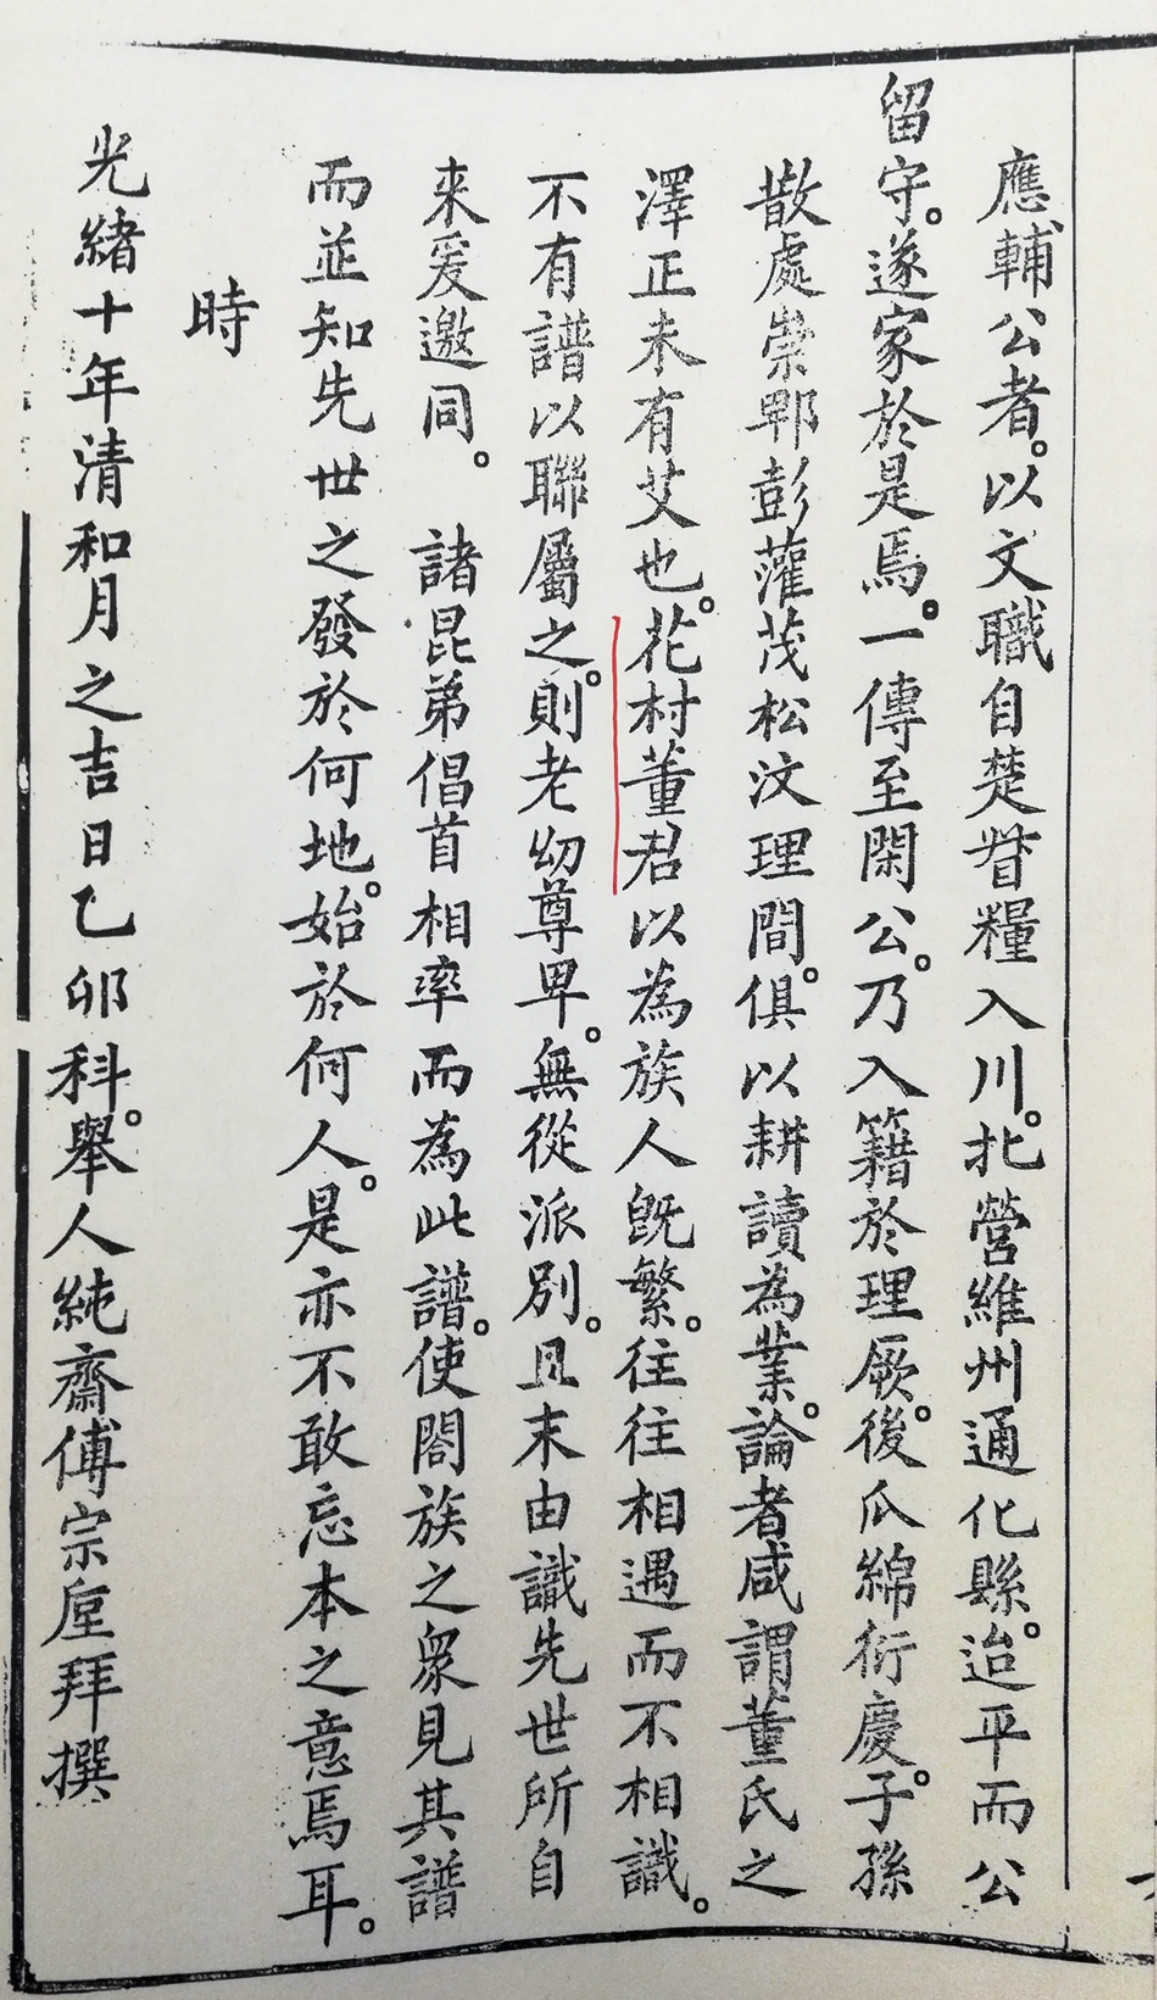 應輔公者。以文職自楚督糧入川。北營維州通化縣。迨平而公
留守。遂家於是焉。一傳至閑公。乃入籍於理厥後。瓜綿衍慶。子孫
散處崇郫彭灌茂松汶理間。俱以耕讀為業。論者咸謂董氏之
澤正未有艾也。花村董君以為族人既繁。往往相遇而不相識。
不有譜以聯屬之。則老幼尊卑。無從派別。且末由識先世所自
來爰邀同。諸昆弟倡首相率而為此譜。使閤族之眾見其譜
而並知先世之發於何地。始於何人。是亦不敢忘本之意焉耳。
時
光緒十年清和月之吉日乙卯科。舉人純齋傅宗垕拜撰